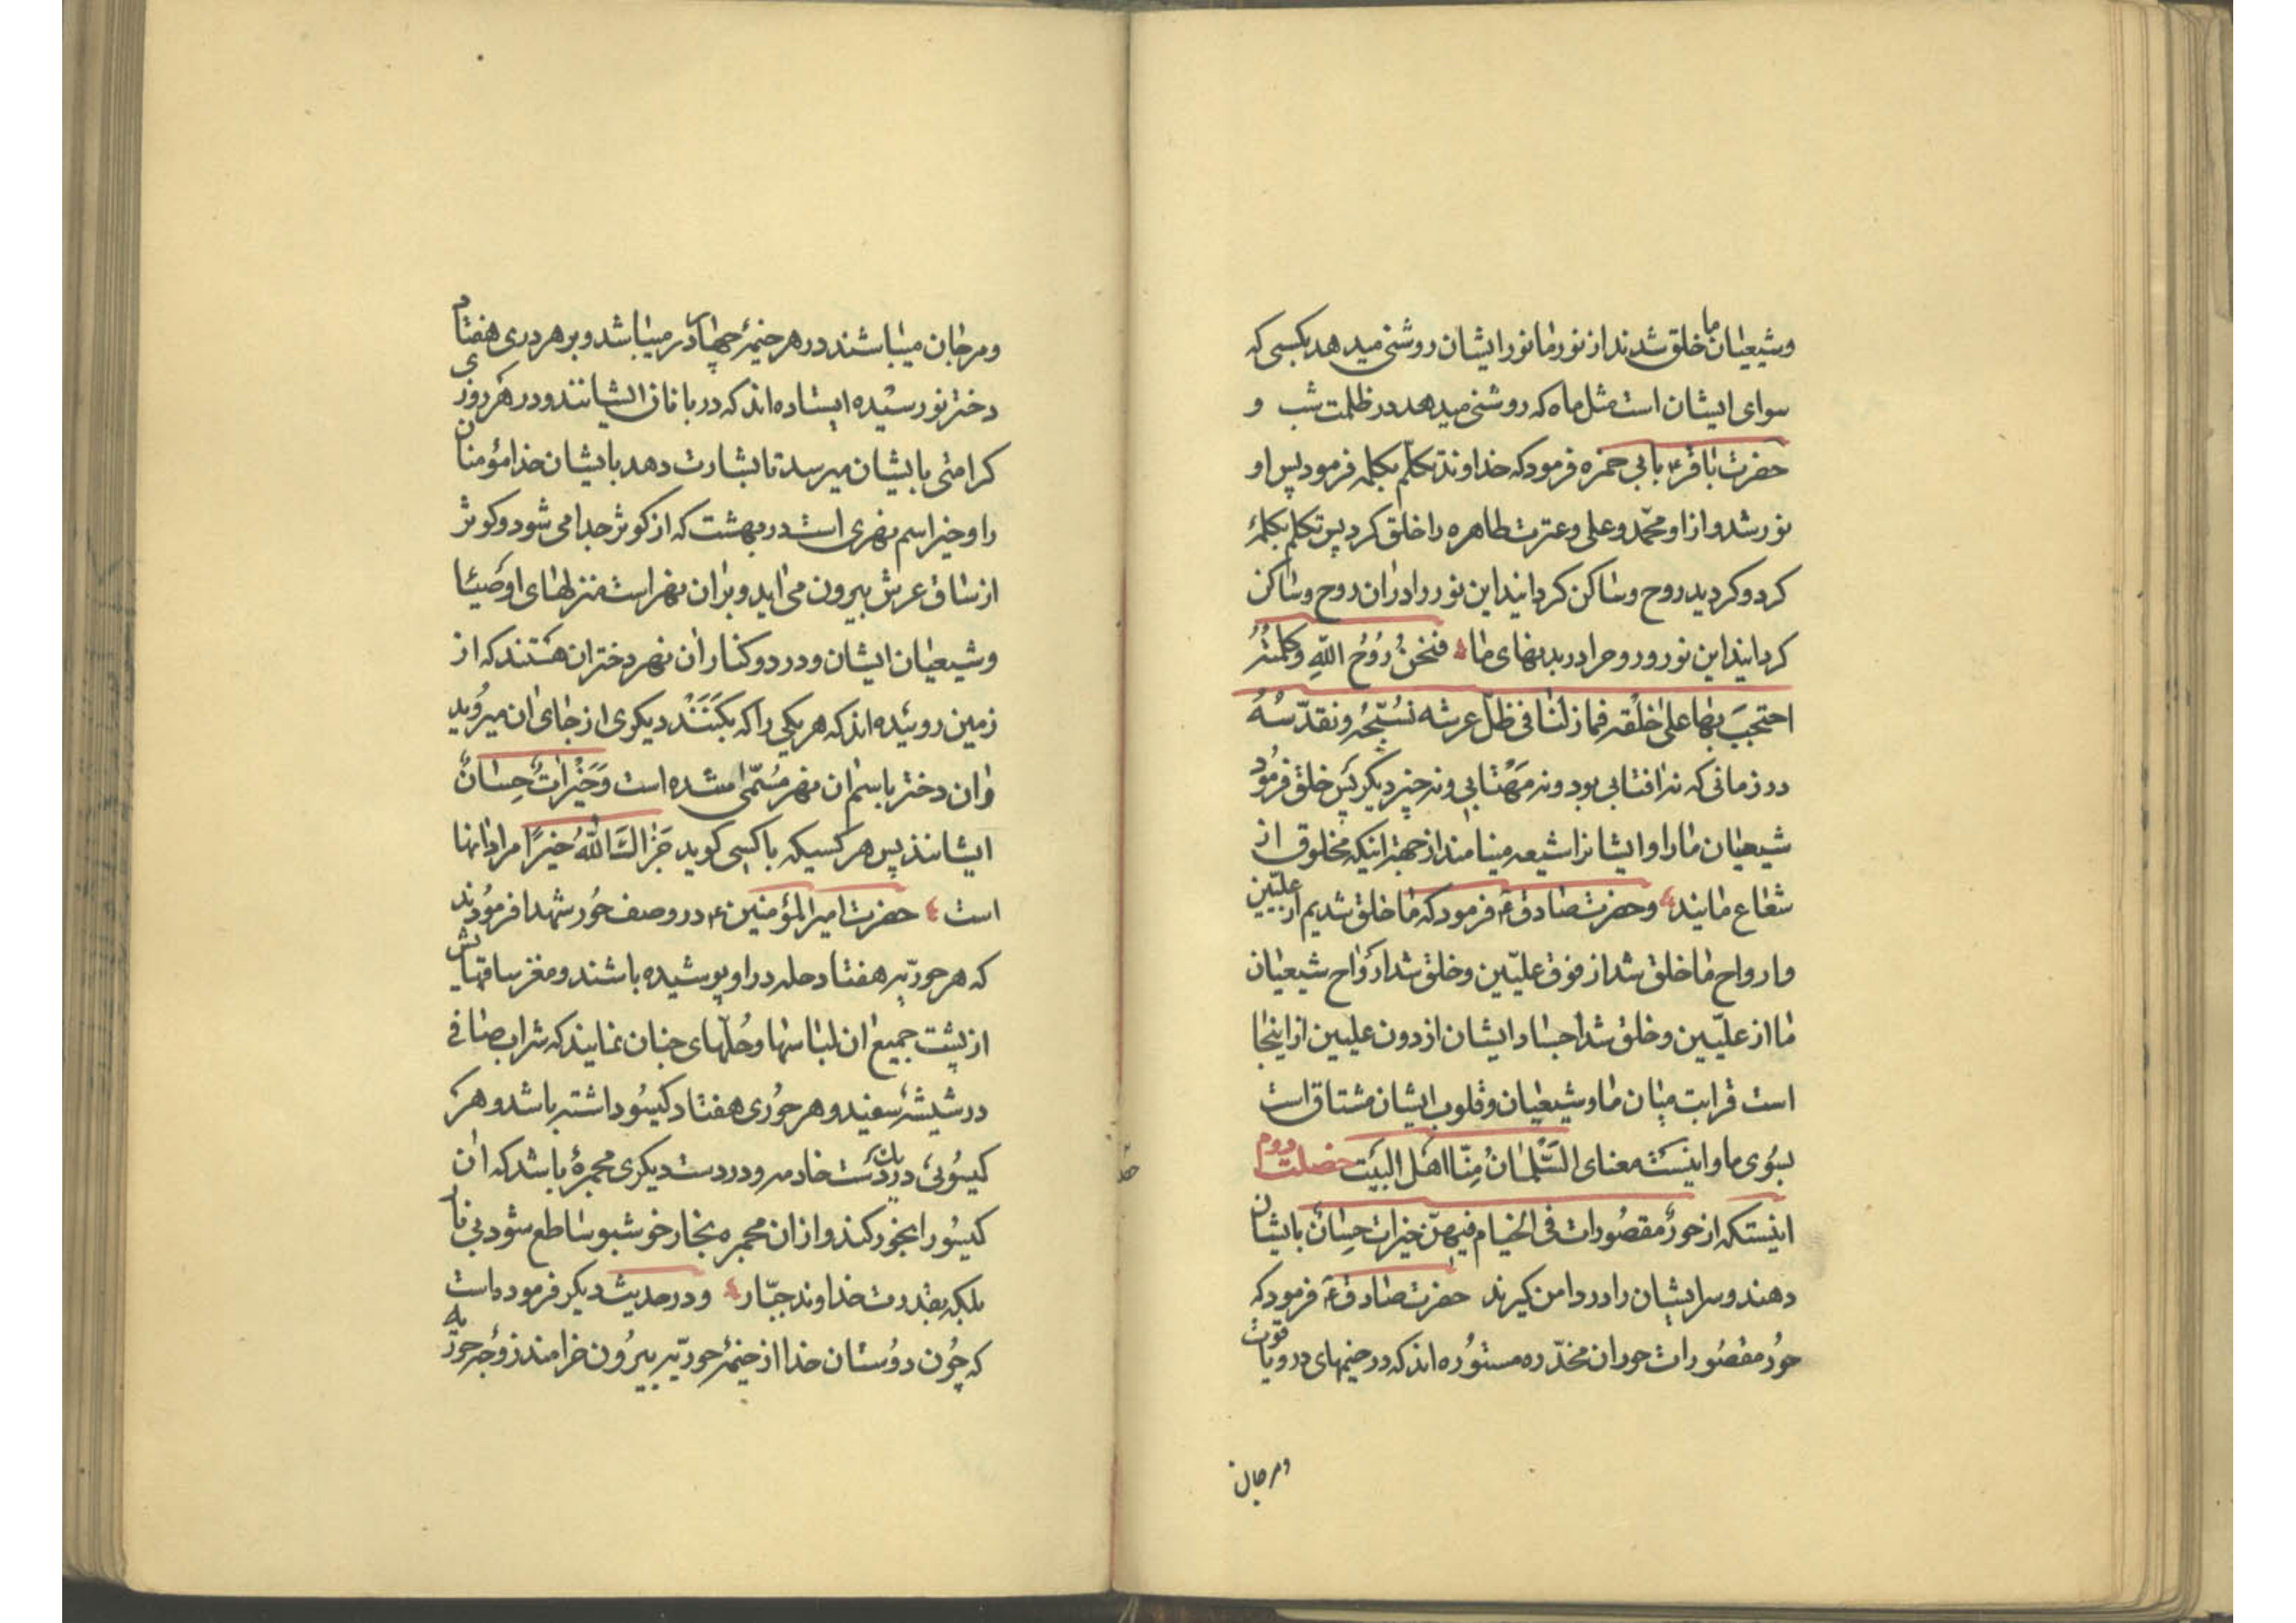 وشیعیان ما خلق شدند از نور ما نور ایشان روشنی میدهد بکسی که
سوای ایشان است مثل ماه که روشنی میدهد در ظلمت شب و
حضرت باقر ع بابی حمزه فرمود که خداوند تکلّم بکلمه فرمود پس او
نور شد و از او محمّد و علی و عترت طاهره را خلق کرد پس تکلم بکلمهٔ
کرد و کردید روح و ساکن کردانید این نور را در ان روح و ساکن
کردانید این نور و روحرا در بدنهای ما فَنَحنُ رُوُحُ اللّهِ وکلمتُهُ
احتجَبَ بها علی خَلْقه فما زلنا فی ظلّ عرشه نُسَبّحُه ونقدّسُهُ
در زمانی که نه افتابی بود و نه مَهْتابی و نه چیز دیکر پَس خلق فرمُود
شیعیان ما را و ایشانرا شیعه مینامند از جهة اینکه مخلوق از
شعاع مایند وحضرت صادق ع فرمود که ما خلق شدیم از علیّین
وارواح ما خلق شد از فوق علیّین و خلق شد ارواح شیعیان
ما از علیّین و خلق شد اجساد ایشان از دون علیین از اینجا
است قرابت میان ما و شیعیان و قلوب ایشان مشتاق است
بسُوی ما و اینسَت معنای السَّلمانُ مِنّا اهَل البیَت خصلت دوم
اینستکه از حورٌ مقصُورات فی الخیام فیهنّ خیرات حِسانٌ بایشان
دهند و سر ایشان را در دامن کیرند حضرت صادق ع فرمود که
حُورٌ مقصُورات حوران مخدّره مستوُره اند که در خیمهای در و یاقوت
ومرجان
ومرجان میباشند در هر خیمهٔ چهار در میباشد و بر هر دری هفتاد
دختر نورسیده ایستاده اند که دربانان ایشانند و در هر روزی
کرامتی بایشان میرسد تا بشارت دهد بایشان خدا مؤمنان
را و خیر اسم نهری است در بهشت که از کوثر جدا می شود و کوثر
از ساق عرش بیرون می اید و بر ان نهر است منزلهای اوصیا
وشیعیان ایشان و در دو کنار ان نهر دختران هستند که از
زمین روییده اند که هر یکی را که بکَنَنْد دیکری از جای ان میروُید
وان دختر باسم ان نهر مُسَمّی شده است وَخَیْراتٌ حِسانٌ
ایشانند پس هر کسیکه با کسی کوید جَزاکَ اللّهُ خیرًا مراد انها
است حضرت امیر المؤمنین ع در وصف حُور شهدا فرمُودند
که هر حوریّه هفتاد حله در او پوسشیده باشند و مغز ساقهایش
از پشت جمیع ان لباسها و حُلّهای چنان نمایند که شراب صافی
در شیشهٔ سفید و هر حوُری هفتاد کیسُو داشته باشد و هر
کیسُویی در یک دست خادمه و در دست دیکری مجمرهٔ باشد که ان
کیسُو را بخور کند و از ان مجمره بخار خوشبو ساطع شود بی نار
بلکه بقدرت خداوند جبّار ودر حدیث دیکر فرموده است
که چُون دوُستان خدا از خیمهٔ حوریّه بیروُن خرامند زوُجه حوریه